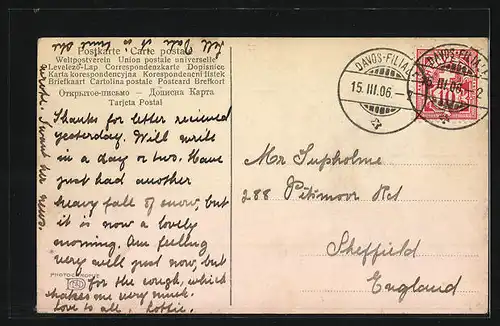 Postkarte - Carte postale
Weltpostverein Union postale universelle
Levelező-Lap Correspondenzkarte Dopisnice
Karta korespondencyjna Korespondenční lístek
Briefkaart Cartolina postale Postcard Brefkort
Открытое-письмо — Дописна Карта
Tarjeta Postal
Thanks for letter received
yesterday. Will write
in a day or two. Have
just had another
heavy fall of snow, but
it is now a lovely
morning. Am feeling
very well just now, but
for the cough, which
makes me very weak.
Love to all, Lottie.
wrote. I want her news.
PHOTOCHROMIE
DAVOS-FILIALE
15.III.06.
DAVOS-FILIAL
III.06.
10
Mr Supholme
288 Pitsmoor Rd
Sheffield
England